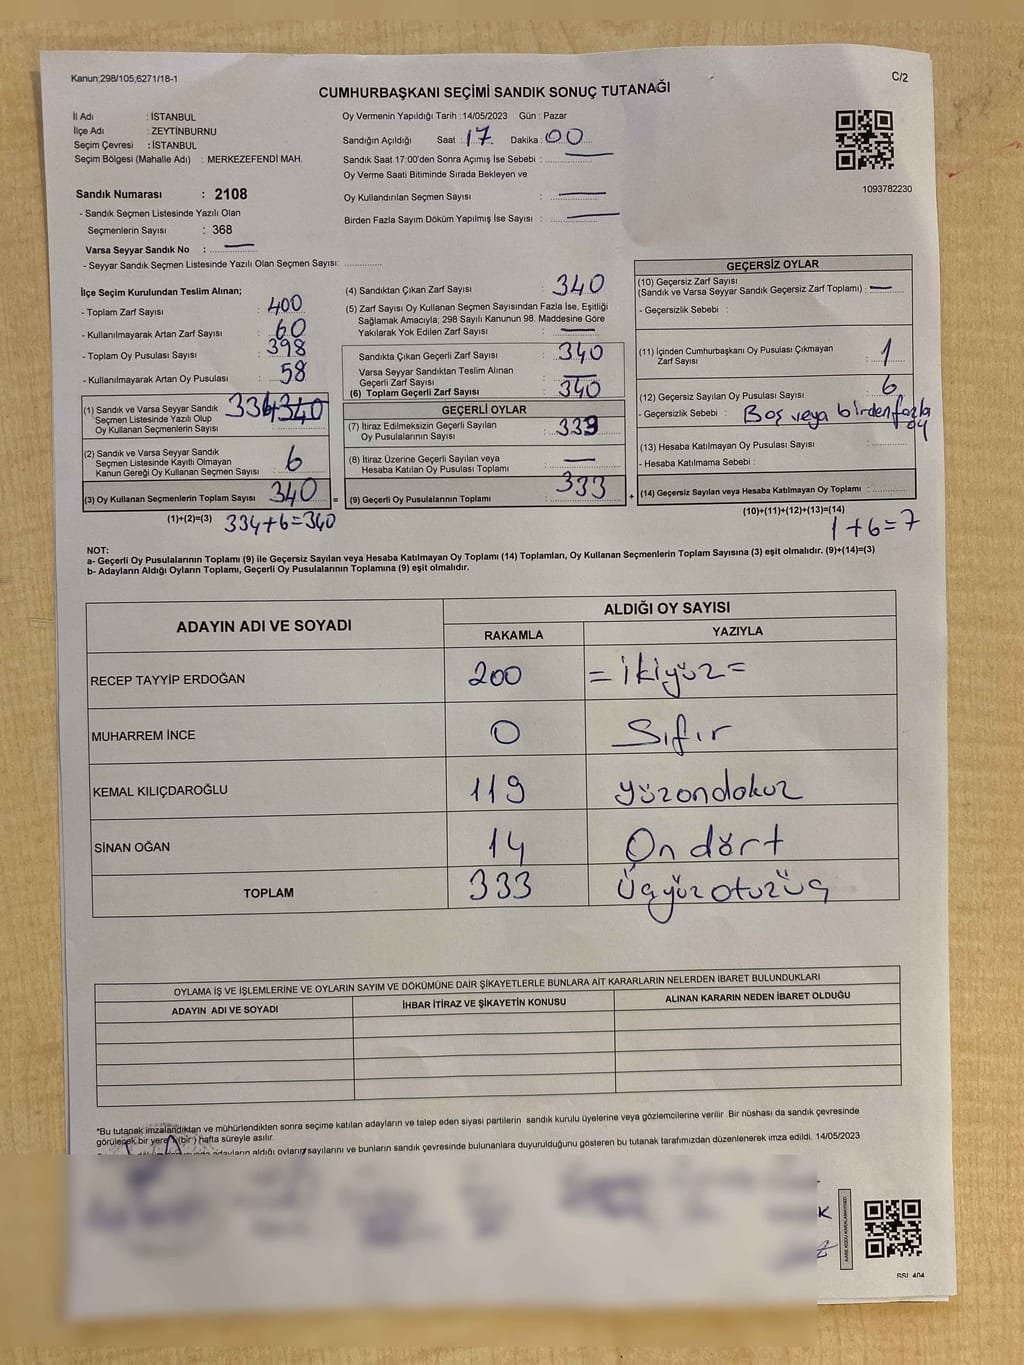 Kanun;298/105;6271/18-1
C/2
CUMHURBAŞKANI SEÇİMİ SANDIK SONUÇ TUTANAĞI
İl Adı : İSTANBUL
İlçe Adı : ZEYTİNBURNU
Seçim Çevresi : İSTANBUL
Seçim Bölgesi (Mahalle Adı) : MERKEZEFENDİ MAH.
Sandık Numarası : 2108
- Sandık Seçmen Listesinde Yazılı Olan
Seçmenlerin Sayısı : 368
Varsa Seyyar Sandık No :
- Seyyar Sandık Seçmen Listesinde Yazılı Olan Seçmen Sayısı:
Oy Vermenin Yapıldığı Tarih : 14/05/2023 Gün : Pazar
Sandığın Açıldığı Saat : 17. Dakika : 00
Sandık Saat 17:00'den Sonra Açımış İse Sebebi :
Oy Verme Saati Bitiminde Sırada Bekleyen ve
Oy Kullandırılan Seçmen Sayısı :
Birden Fazla Sayım Döküm Yapılmış İse Sayısı :
1093782230
İlçe Seçim Kurulundan Teslim Alınan;
- Toplam Zarf Sayısı : 400
- Kullanılmayarak Artan Zarf Sayısı : 60
- Toplam Oy Pusulası Sayısı : 398
- Kullanılmayarak Artan Oy Pusulası : 58
(1) Sandık ve Varsa Seyyar Sandık 334 340
Seçmen Listesinde Yazılı Olup
Oy Kullanan Seçmenlerin Sayısı :
(2) Sandık ve Varsa Seyyar Sandık
Seçmen Listesinde Kayıtlı Olmayan
Kanun Gereği Oy Kullanan Seçmen Sayısı : 6
(3) Oy Kullanan Seçmenlerin Toplam Sayısı : 340 =
(1)+(2)=(3) 334+6=340
(4) Sandıktan Çıkan Zarf Sayısı : 340
(5) Zarf Sayısı Oy Kullanan Seçmen Sayısından Fazla İse, Eşitliği
Sağlamak Amacıyla; 298 Sayılı Kanunun 98. Maddesine Göre
Yakılarak Yok Edilen Zarf Sayısı :
Sandıkta Çıkan Geçerli Zarf Sayısı : 340
Varsa Seyyar Sandıktan Teslim Alınan
Geçerli Zarf Sayısı :
(6) Toplam Geçerli Zarf Sayısı : 340
GEÇERLİ OYLAR
(7) İtiraz Edilmeksizin Geçerli Sayılan
Oy Pusulalarının Sayısı : 333
(8) İtiraz Üzerine Geçerli Sayılan veya
Hesaba Katılan Oy Pusulası Toplamı :
(9) Geçerli Oy Pusulalarının Toplamı : 333 +
GEÇERSİZ OYLAR
(10) Geçersiz Zarf Sayısı
(Sandık ve Varsa Seyyar Sandık Geçersiz Zarf Toplamı) :
- Geçersizlik Sebebi :
(11) İçinden Cumhurbaşkanı Oy Pusulası Çıkmayan
Zarf Sayısı : 1
(12) Geçersiz Sayılan Oy Pusulası Sayısı : 6
- Geçersizlik Sebebi : Boş veya birden fazla
oy
(13) Hesaba Katılmayan Oy Pusulası Sayısı :
- Hesaba Katılmama Sebebi :
(14) Geçersiz Sayılan veya Hesaba Katılmayan Oy Toplamı :
(10)+(11)+(12)+(13)=(14)
1+6=7
NOT:
a- Geçerli Oy Pusulalarının Toplamı (9) ile Geçersiz Sayılan veya Hesaba Katılmayan Oy Toplamı (14) Toplamları, Oy Kullanan Seçmenlerin Toplam Sayısına (3) eşit olmalıdır. (9)+(14)=(3)
b- Adayların Aldığı Oyların Toplamı, Geçerli Oy Pusulalarının Toplamına (9) eşit olmalıdır.
ADAYIN ADI VE SOYADI ALDIĞI OY SAYISI
RAKAMLA YAZIYLA
RECEP TAYYİP ERDOĞAN 200 =ikiyüz=
MUHARREM İNCE 0 Sıfır
KEMAL KILIÇDAROĞLU 119 yüzondokuz
SİNAN OĞAN 14 On dört
TOPLAM 333 Üçyüzotuzüç
OYLAMA İŞ VE İŞLEMLERİNE VE OYLARIN SAYIM VE DÖKÜMÜNE DAİR ŞİKAYETLERLE BUNLARA AİT KARARLARIN NELERDEN İBARET BULUNDUKLARI
ADAYIN ADI VE SOYADI İHBAR İTİRAZ VE ŞİKAYETİN KONUSU ALINAN KARARIN NEDEN İBARET OLDUĞU
*Bu tutanak imzalandıktan ve mühürlendikten sonra seçime katılan adayların ve talep eden siyasi partilerin sandık kurulu üyelerine veya gözlemcilerine verilir. Bir nüshası da sandık çevresinde
görülecek bir yere (bir) hafta süreyle asılır.
adayların aldığı oyların sayılarını ve bunların sandık çevresinde bulunanlara duyurulduğunu gösteren bu tutanak tarafımızdan düzenlenerek imza edildi. 14/05/2023
SSI_404